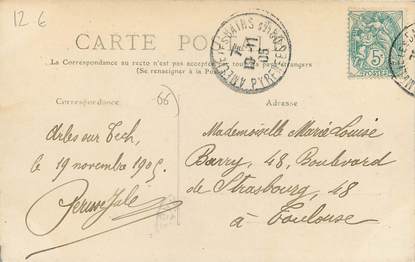 12.6
CARTE POSTALE
La Correspondance au recto n'est pas acceptée par tous les pays étrangers
(Se renseigner à la Poste)
AMÉLIE-LES-BAINS
PYRÉNÉES
19 -11
05
5
POSTES
Correspondance
66
Adresse
Arles sur Tech,
le 19 novembre 1905
Mademoiselle Marie Louise
Barry, 48, Boulevard
de Strasbourg, 48
à Toulouse